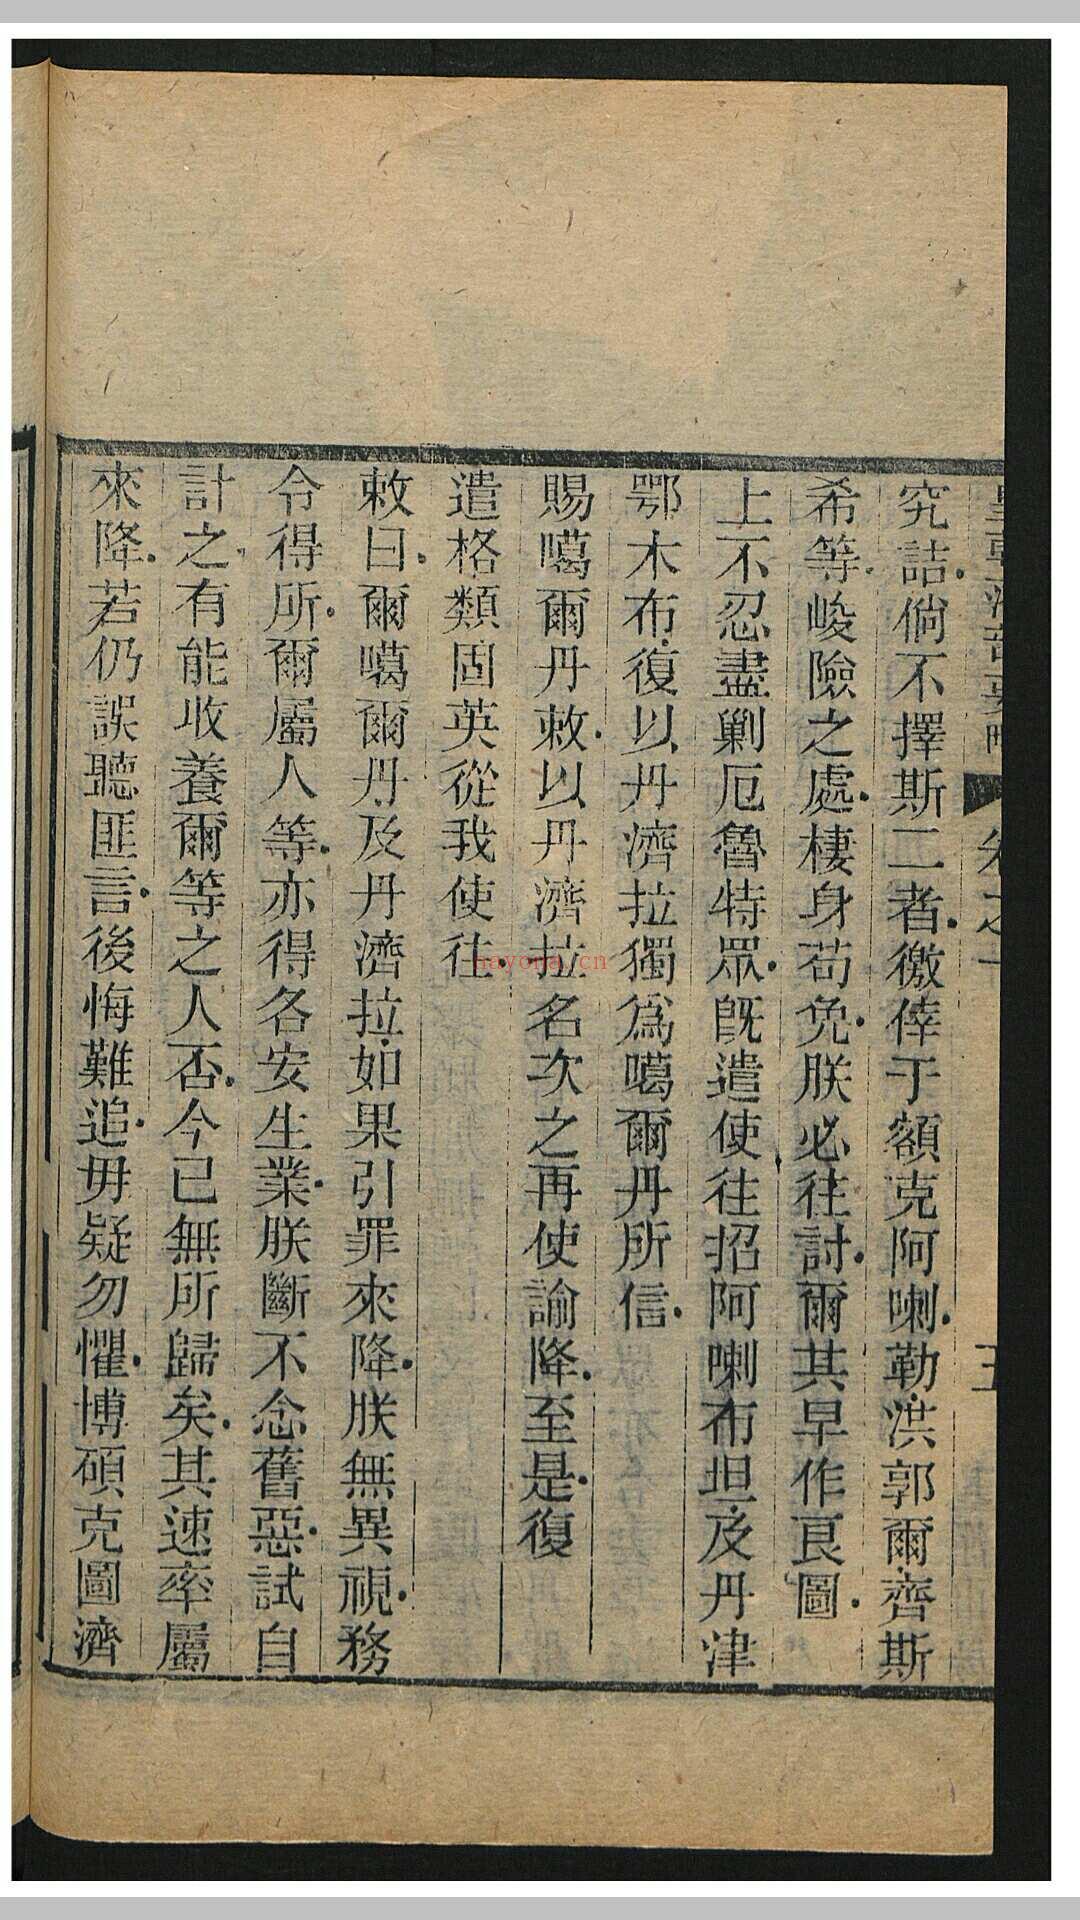 皇朝藩部要略 卷之十
究詰倘不擇斯二者徼倖于額克阿喇勒洪郭爾齊斯
希等峻險之處棲身苟免朕必往討爾其早作良圖
上不忍盡剿厄魯特眾旣遣使往招阿喇布坦及丹津
鄂木布復以丹濟拉獨爲噶爾丹所信
賜噶爾丹敕以丹濟拉名次之再使諭降至是復
遣格類固英從我使往
敕曰爾噶爾丹及丹濟拉如果引罪來降朕無異視務
令得所爾屬人等亦得各安生業朕斷不念舊惡試自
計之有能收養爾等之人否今已無所歸矣其速率屬
來降若仍誤聽匪言後悔難追毋疑勿懼博碩克圖濟
nayona.cn